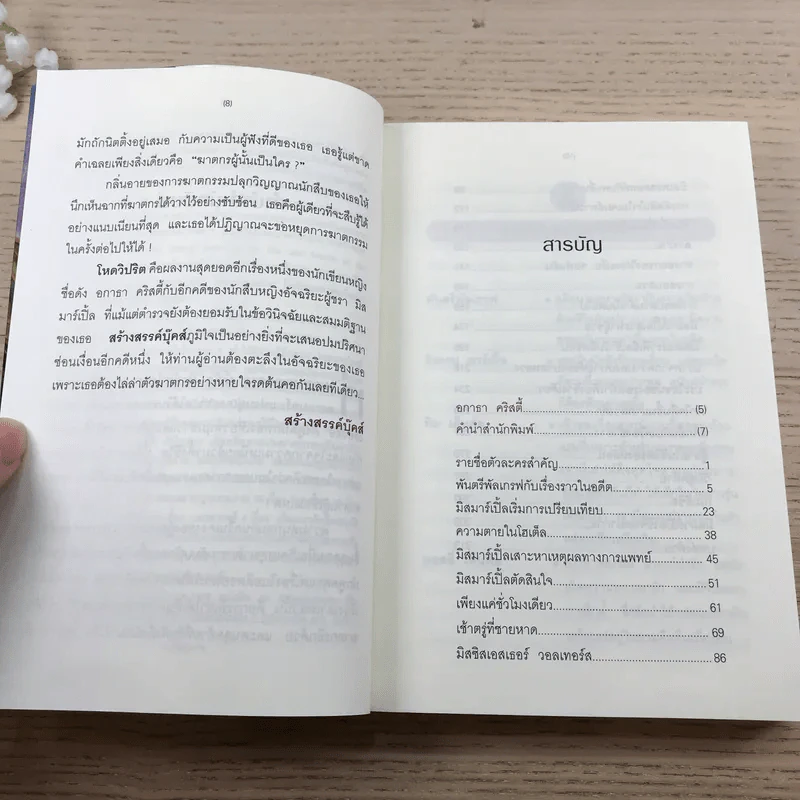 (8)
มักถักนิตติ้งอยู่เสมอ กับความเป็นผู้ฟังที่ดีของเธอ เธอรู้แต่ขาด
คำเฉลยเพียงสิ่งเดียวคือ "ฆาตกรผู้นั้นเป็นใคร ?"
กลิ่นอายของการฆาตกรรมปลุกวิญญาณนักสืบของเธอให้
นึกเห็นฉากที่ฆาตกรได้วางไว้อย่างซับซ้อน เธอคือผู้เดียวที่จะสืบรู้ได้
อย่างแนบเนียนที่สุด และเธอได้ปฏิญาณจะขอหยุดการฆาตกรรม
ในครั้งต่อไปให้ได้ !
โหดวิปริต คือผลงานสุดยอดอีกเรื่องหนึ่งของนักเขียนหญิง
ชื่อดัง อกาธา คริสตี้กับอีกคดีของนักสืบหญิงอัจฉริยะผู้ชรา มิส
มาร์เปิ้ล ที่แม้แต่ตำรวจยังต้องยอมรับในข้อวินิจฉัยและสมมติฐาน
ของเธอ สร้างสรรค์บุ๊คส์ภูมิใจเป็นอย่างยิ่งที่จะเสนอปมปริศนา
ซ่อนเงื่อนอีกคดีหนึ่ง ให้ท่านผู้อ่านต้องตะลึงในอัจฉริยะของเธอ
เพราะเธอต้องไล่ล่าตัวฆาตกรอย่างหายใจรดต้นคอกันเลยทีเดียว...
สร้างสรรค์บุ๊คส์
สารบัญ
อกาธา คริสตี้ (5)
คำนำสำนักพิมพ์ (7)
รายชื่อตัวละครสำคัญ 1
พันตรีพัลเกรฟกับเรื่องราวในอดีต 5
มิสมาร์เปิ้ลเริ่มการเปรียบเทียบ 23
ความตายในโฮเต็ล 38
มิสมาร์เปิ้ลเสาะหาเหตุผลทางการแพทย์ 45
มิสมาร์เปิ้ลตัดสินใจ 51
เพียงแค่ชั่วโมงเดียว 61
เช้าตรู่ที่ชายหาด 69
มิสซิสเอสเธอร์ วอลเทอร์ส 86